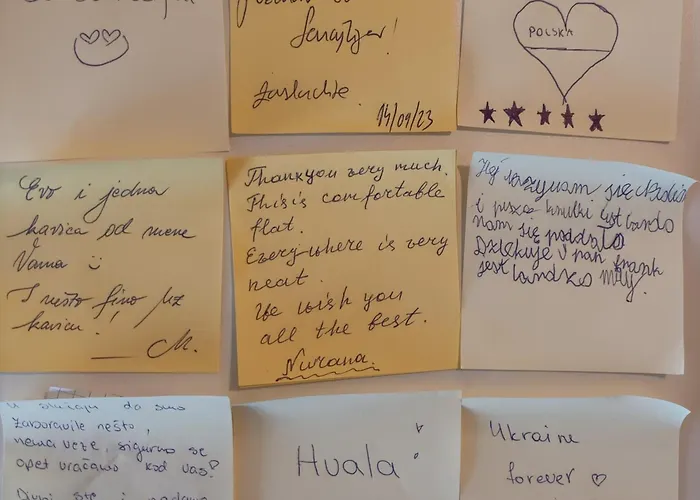 Sarajevo!
14/09/23
POLSKA
Evo i jedna
kavica od mene
Vama
I nešto fino uz
kavicu!
M.
Thankyou very much.
This is comfortable
flat.
Every where is very
neat.
We wish you
all the best.
Nurana.
Hej nazywam się
i piszę krutki list bardo
nam się poddało
Dziękuje i pan frank
jest bardzo miły.
u slučaju da smo
zaboravile nešto,
nema veze, sigurno se
opet vraćamo kod vas!
Hvala
Ukraine
forever